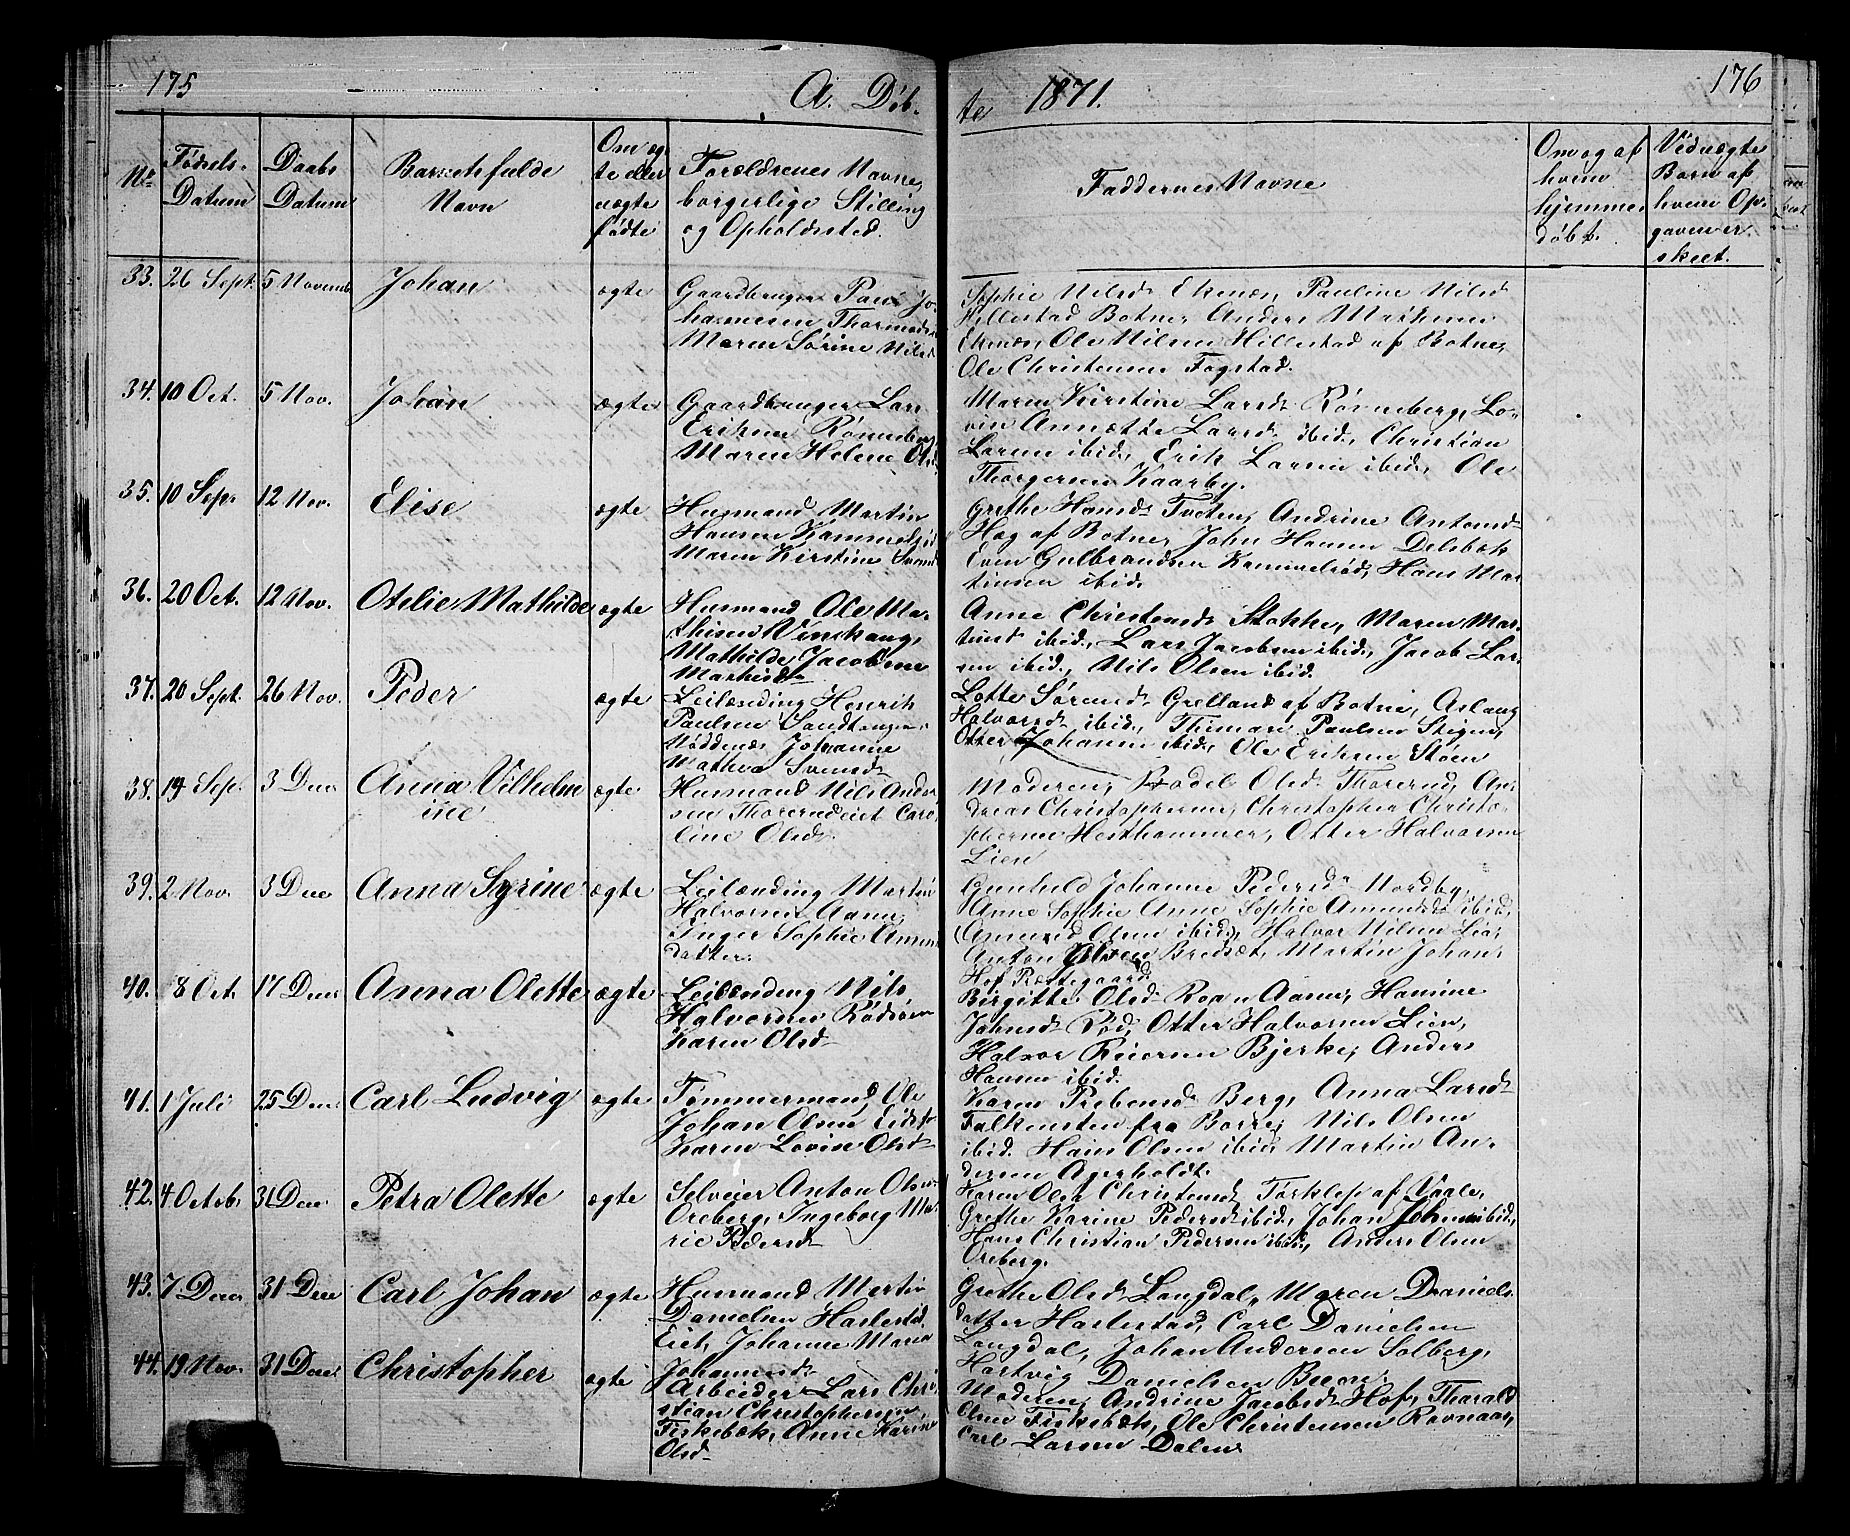 175
A. Døb-
te 1871.
176
No
Fødsels-
Datum
Daabs
Datum
Barnets fulde
Navn
Om æg
te eller
uægte
fødte
Forældrenes Navne,
borgerlige Stilling
og Opholdssted.
Faddernes Navne
Om og af
hvem
hjemme-
døbt.
Ved uægte
Børn af
hvem Op-
gaven er
skeet.
33. 26 Sept. 5 Novemb Johan ægte
Gaardbruger Paul Jo-
hannesen Thormods
Maren Sørine Nilsd
Sophie Nilsd Ekenæs, Pauline Nilsd
Hillestad Botne, Anders Mathisen
Ekenæs, Ole Nilsen Hillestad af Botne,
Ole Christensen Fogstad.
34. 10 Oct. 5 Nov. Johan ægte
Gaardbruger Lars
Eriksen Rønneberg
Maren Helene Olsd
Maren Kirstine Larsd Rønneberg, Lo-
vin Annette Larsd ibid, Christian
Larsen ibid, Erik Larsen ibid, Ole
Thorgersen Kaarby.
35. 10 Sep. 12 Nov. Elise ægte
Husmand Martin
Hansen Kammelrød
Maren Kirstine Svends
Grethe Hansd Tveten, Andrine Antonsd
Høg af Botne, John Hansen Delebæk
Even Gulbrandsen Kammelrød, Hans Mar-
tinsen ibid.
36. 20 Oct. 12 Nov. Otilie Mathilde ægte
Husmand Ole Ma-
thisen Vinskang,
Mathilde Jacobine
Mathisd
Anne Christensd Stokke, Maren Mar-
tinsd ibid, Lars Jacobsen ibid, Jacob Lar-
sen ibid, Nils Olsen ibid.
37. 20 Sept. 26 Nov. Peder ægte
Leilænding Henrik
Paulsen Sandtangen,
Nøddenæs, Johanne
Mathea Svensd
Lotte Sørensd Grelland af Botne, Aslaug
Halvorsd ibid, Thimari Paulsen Stigen,
Otter Johanns ibid, Ole Eriksen Støen
38. 19 Sep. 3 Decr Anna Vilhelm
ine ægte
Husmand Nils Ander
sen Thorerudeiet Caro-
line Olsd.
Moderen, Bodel Olsd Thorerud, An-
dreas Christophersen, Christopher Christo-
phersen Hesthammer, Otter Halvorsen
Lien
39. 2 Nov. 3 Dec Anna Syrine ægte
Leilænding Martin
Halvorsen Aasen,
Inger Sophie Amun
datter.
Gunhild Johanne Pedersd Nordby,
Anne Sophie Anne Sophie Amundsd ibid,
(Amund Olsen ibid), Halvor Nilsen Lia,
Anton Olsen Bredsæt, Martin Johan,
Hof Præstegaard
40. 8 Oct. 17 Decr Anna Olette ægte
Leilænding Nils
Halvorsen Rødsøen
Karen Olsd
Birgitte Olsd Roa n Aasen, Hansine
Johnsd Rød, Otter Halvorsen Lien,
Halvor Reiersen Bjerke, Anders
Hansen ibid.
41. 1 Juli 25 Decr Carl Ludvig ægte
Tømmermand Ole
Johan Olsen Eidsfo
Karen Lovise Olsd
Karen Prebensd Berg, Anna Larsd
Falkensten fra Borre, Nils Olsen
ibid. Hans Olsen ibid, Martin An-
dersen Agerholdt.
42. 4 Octob. 31 Decr Petra Olette ægte
Selveier Anton Olsen
Oreberg, Ingeborg Ma-
rie Pedersd
Karen Olsd Christensd Torklep af Vaale,
Grethe Karine Pedersd ibid, Johan Johnsen ibid,
Hans Christian Pedersen ibid, Anders Olsen
Oreberg.
43. 7 Decr 31 Dec Carl Johan ægte
Husmand Martin
Danielsen Haslestad
Eiet, Johanne Maria
Johannesd
Grethe Olsd Langdal, Maren Daniels
datter Haslestad, Carl Danielsen
Langdal, Johan Andersen Solberg,
Hartvig Danielsen Beene.
44. 19 Nov. 31 Decr Christopher ægte
Arbeider Lars Chri
stian Christophersen
Fiskebæk, Anne Karine
Olsd
Moderen, Andrine Jacobsd Hof, Tharald
Olsen Fiskebæk, Ole Christensen Ravnaas,
Carl Larsen Dalen